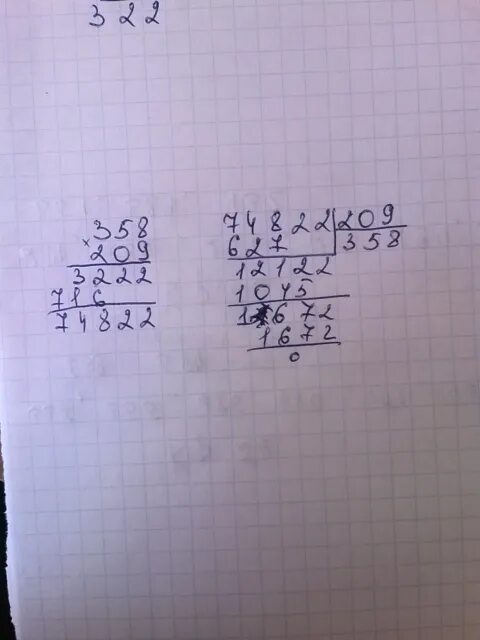 322
358
× 209
3222
716
74822
74822 | 209
627 | 358
12122
1045
1672
1672
0